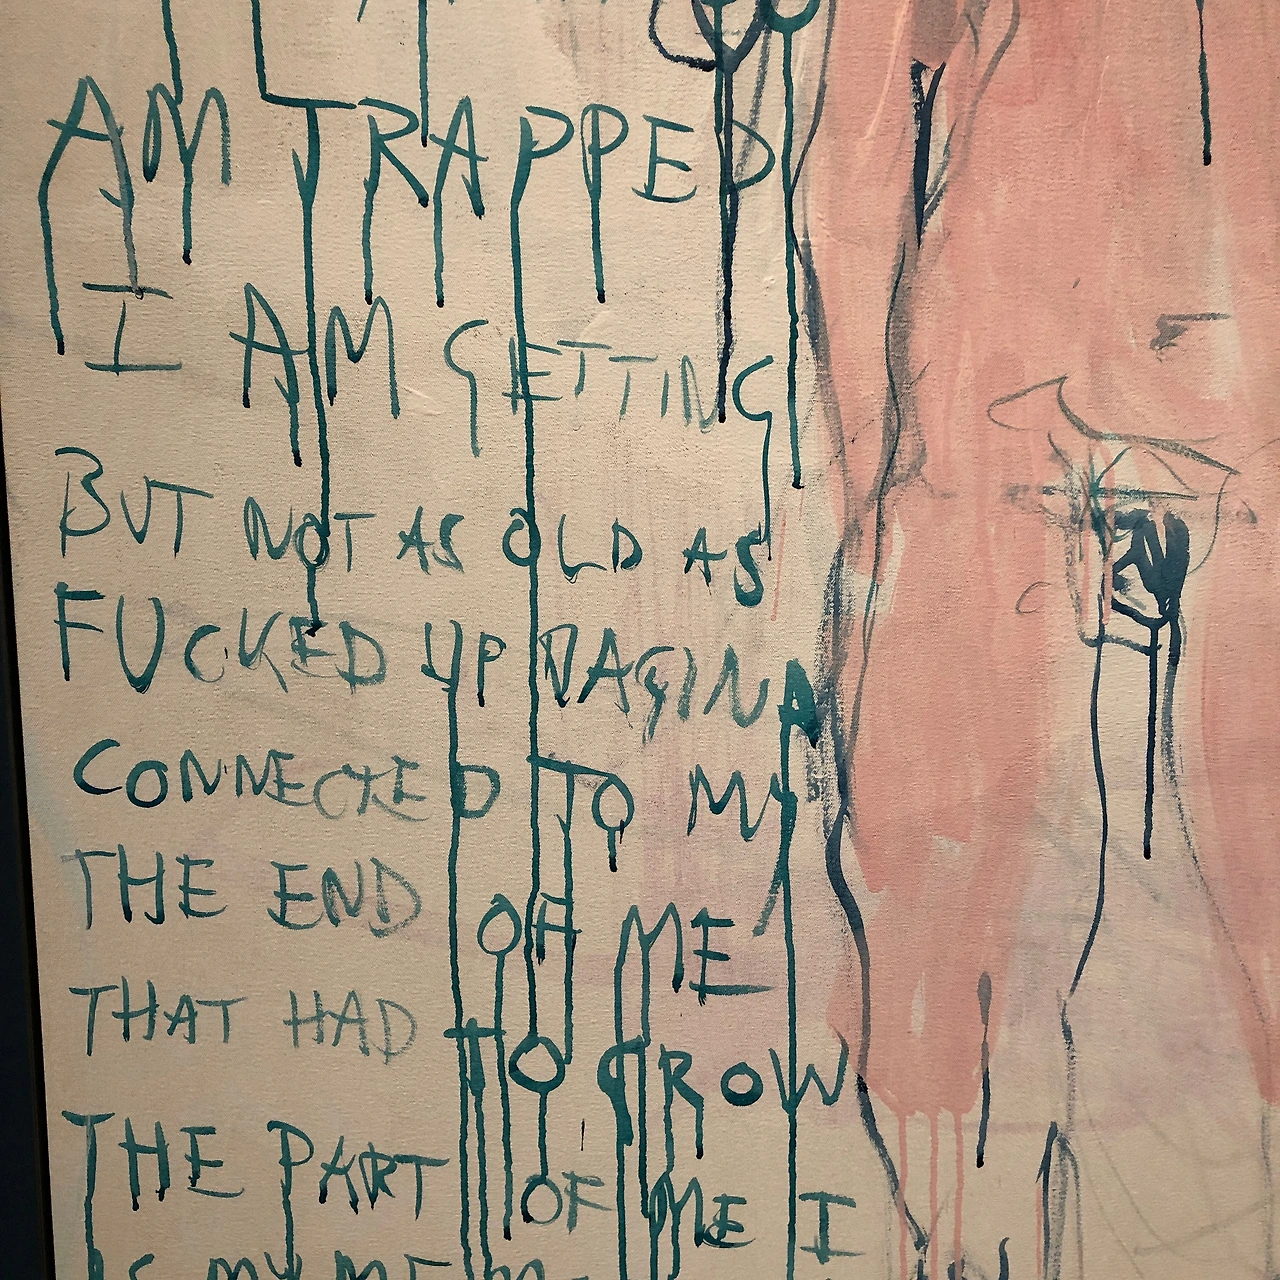 AM TRAPPED
I AM GETTING
BUT NOT AS OLD AS
FUCKED UP VAGINA
CONNECTED TO MY
THE END OF ME
THAT HAD TO GROW
THE PART OF ME I
IS MY ME